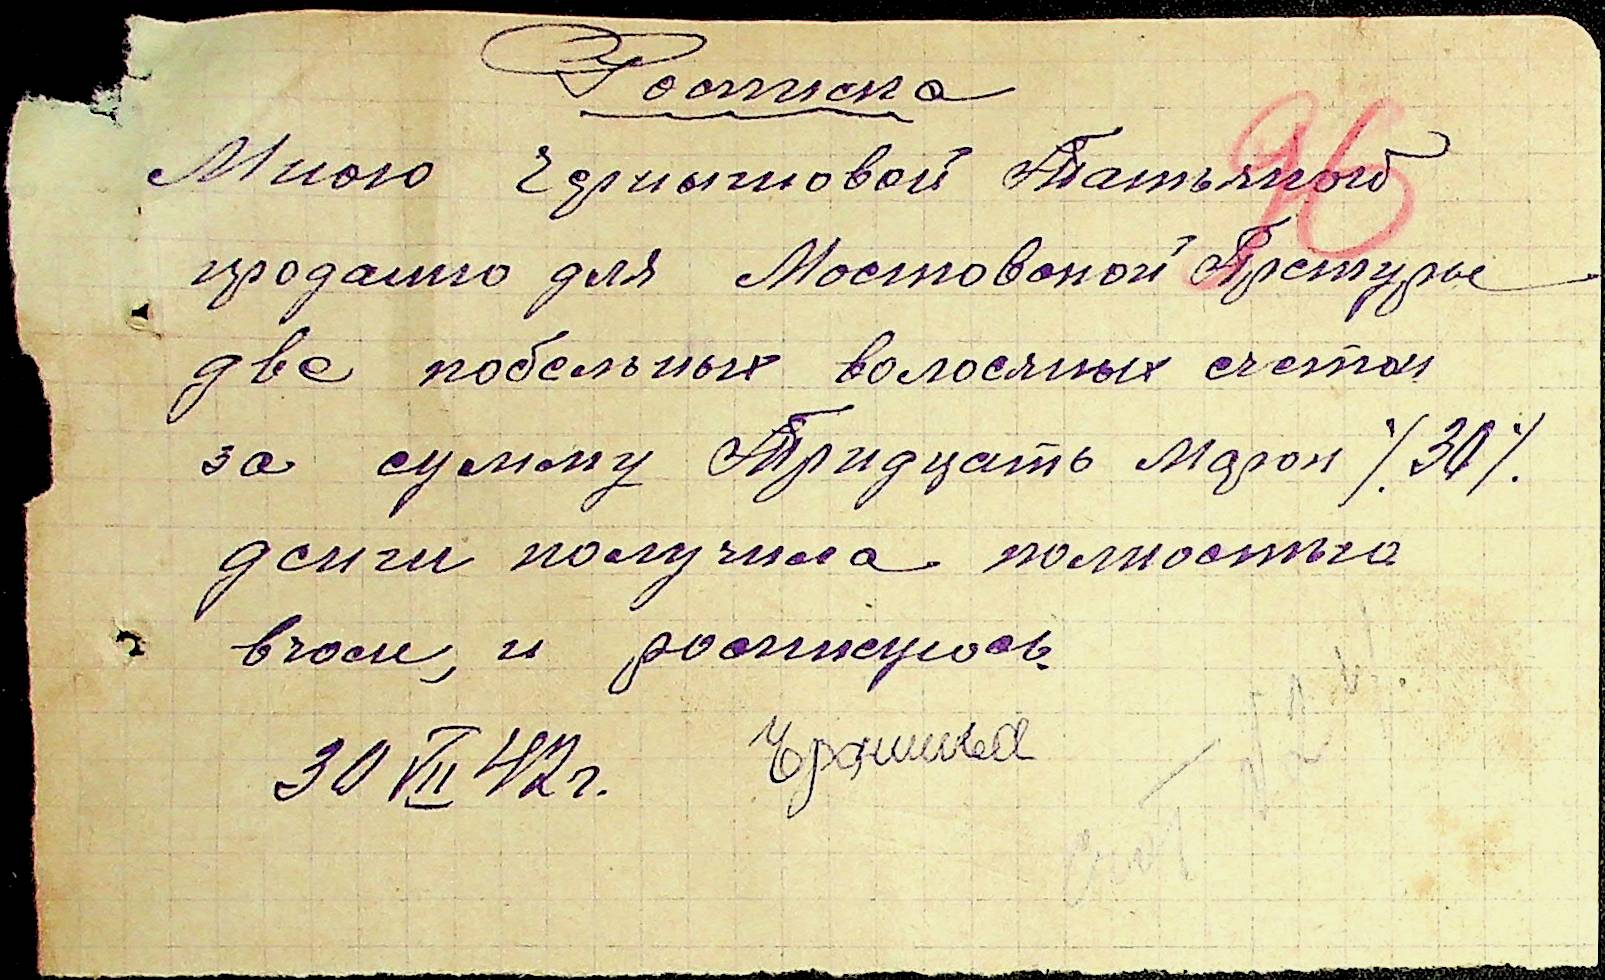 Росписка
96
Мною Чернышовой Татьяной
продамно для Мостовской Претуры
две побельных волосяных счетки
за сумму Тридцать Марок /.30/.
деньги получила полностью
вчом, и росписуюсь
30 VII 42 г.